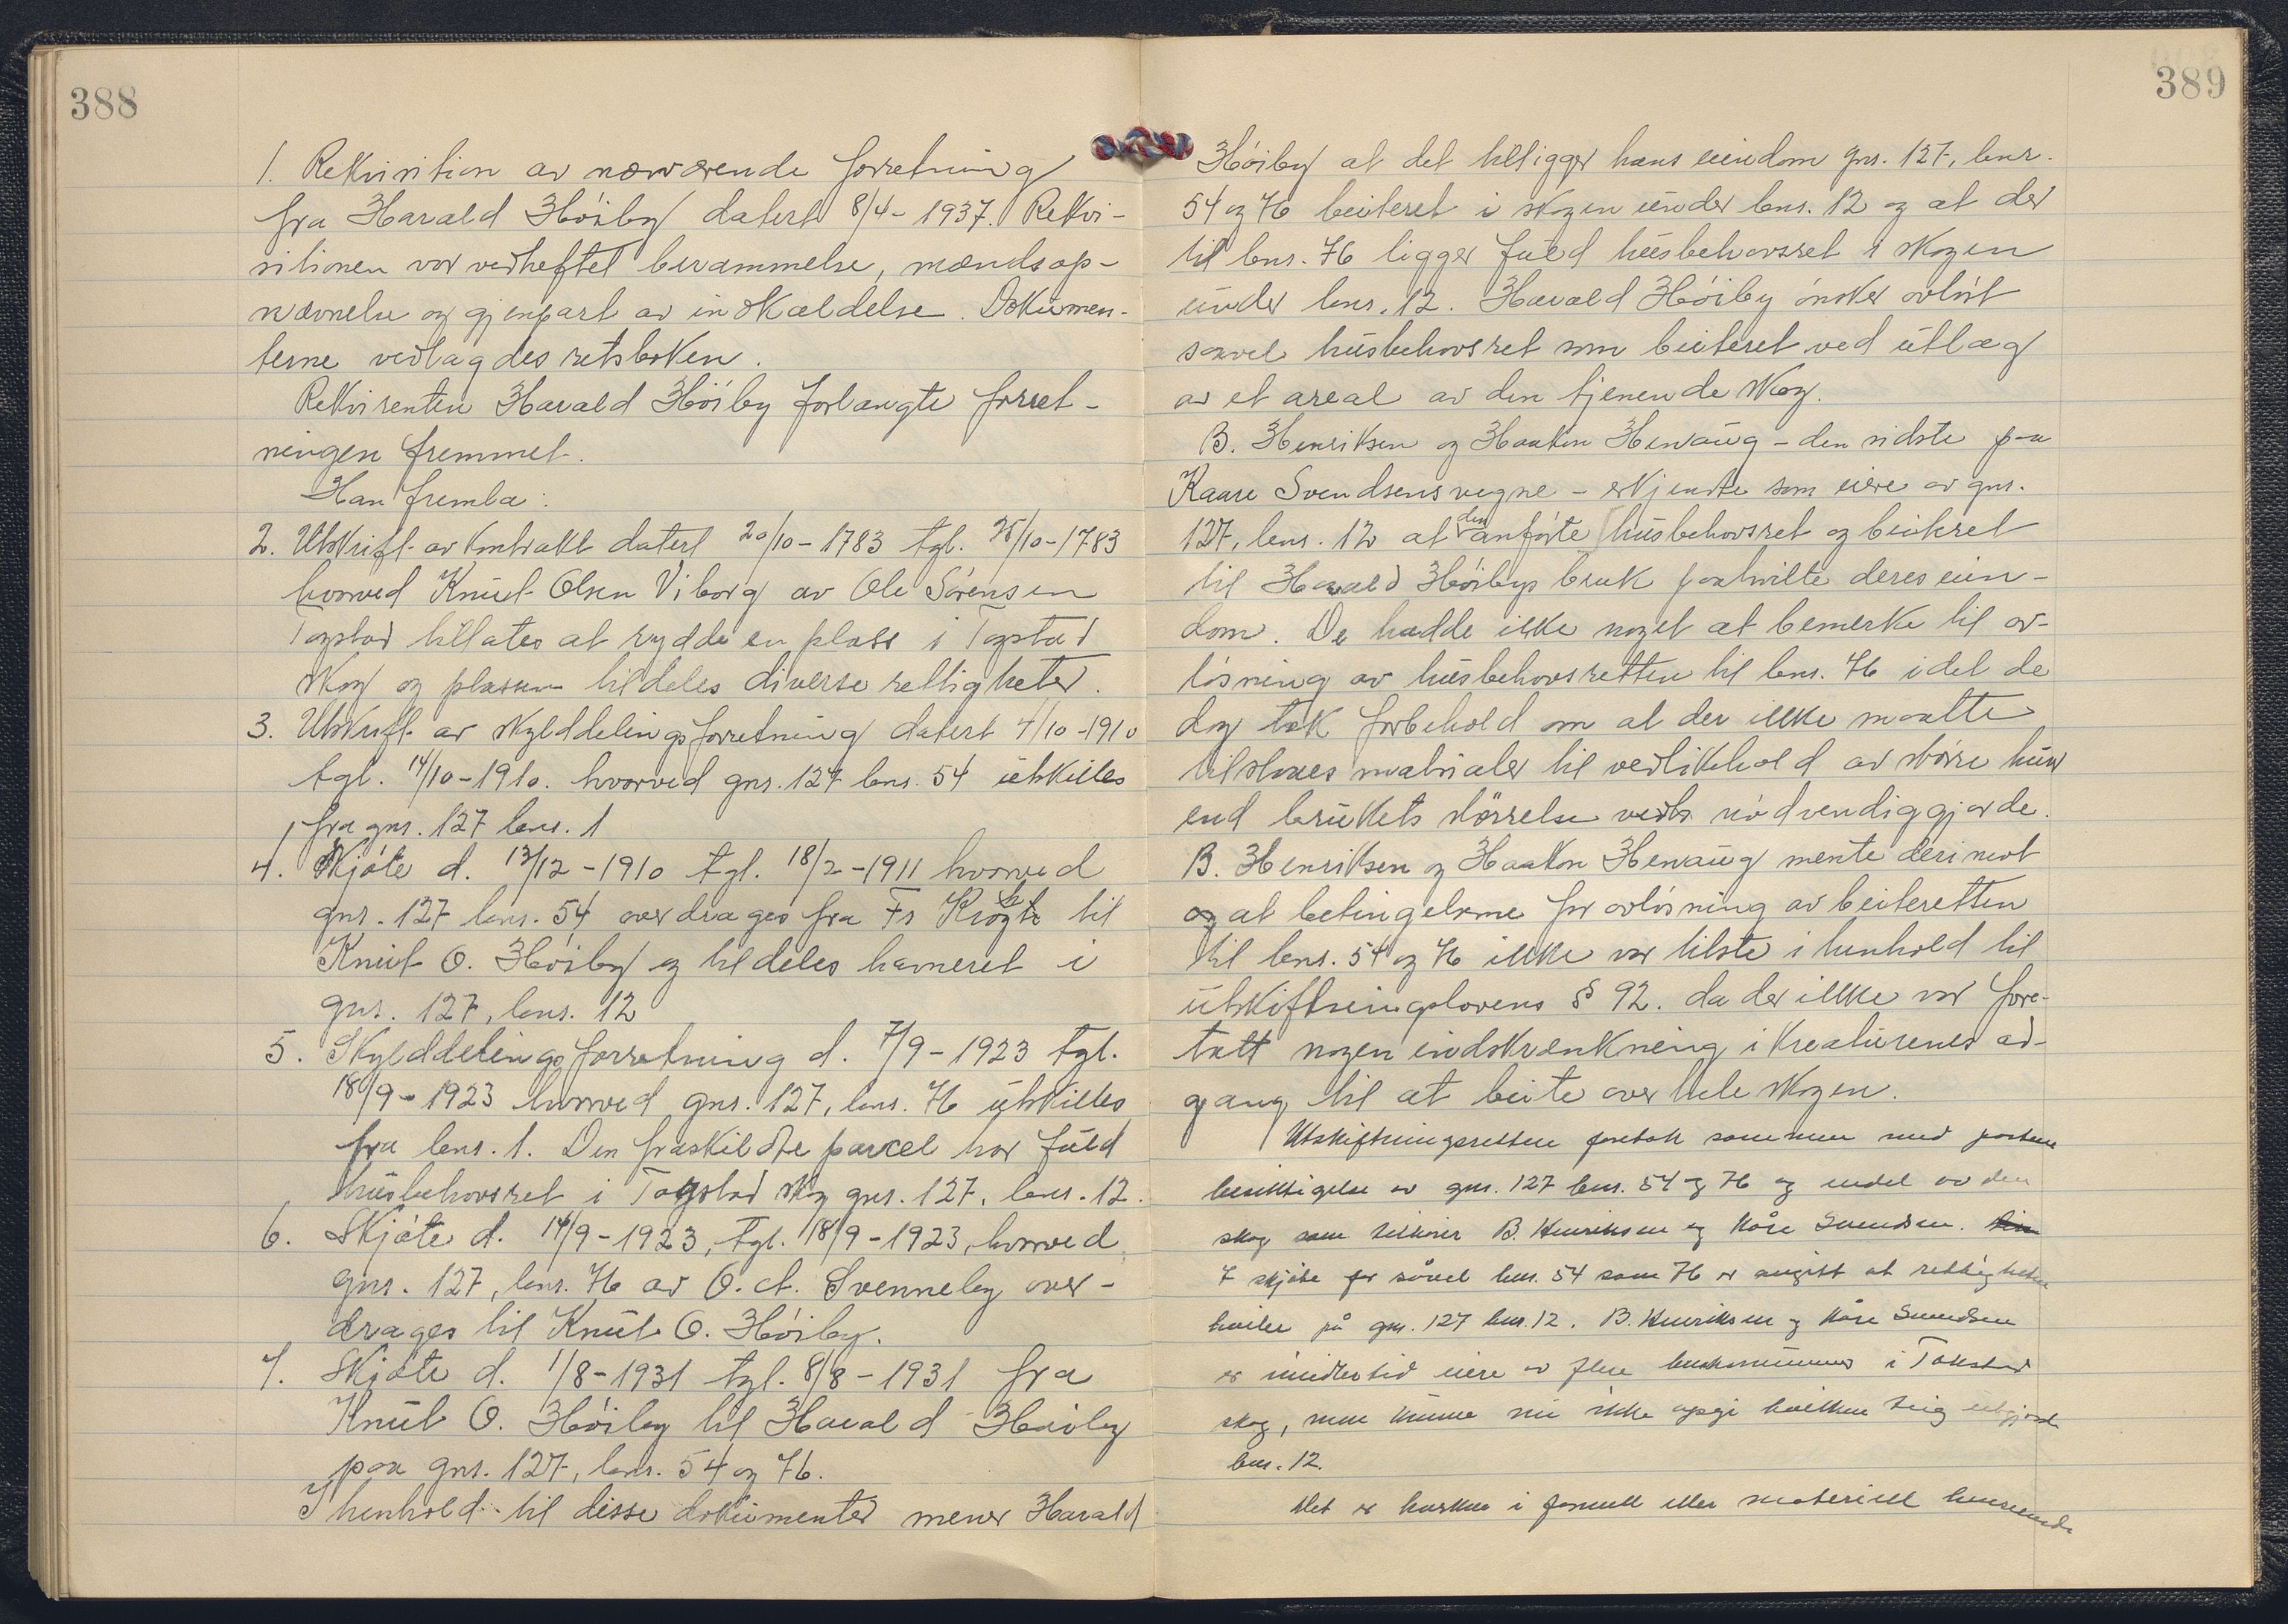 388
1. Rekvisition av nærværende forretning
fra Harald Høiby datert 8/4-1937. Rekvi-
sitionen var vedheftet berammelse, mændsop-
nævnelse og gjenpart av indkaldelse. Dokumen-
terne vedlagdes retsboken.
Rekvirenten Harald Høiby forlangte forret-
ningen fremmet.
Han fremla:
2. Utskrift av kontrakt datert 20/10-1783 tgl. 25/10-1783
hvorved Knut Olsen Viborg av Ole Sørensen
Togstad tillates at rydde en plass i Togstad
skog og plassen tildeles diverse rettigheter.
3. Utskrift av skylddelingsforretning datert 4/10-1910
tgl. 14/10-1910. hvorved gnr. 127 bnr. 54 utskilles
fra gnr. 127 bnr. 1
4. Skjøte d. 13/12-1910 tgl. 18/2-1911 hvorved
gnr. 127 bnr. 54 overdrages fra Fr til
Knut O. Høiby og tildeles havneret i
gnr. 127, bnr. 12
5. Skylddelingsforretning d. 7/9-1923 tgl.
18/9-1923 hvorved gnr. 127, bnr. 76 utskilles
fra bnr. 1. Den fraskildte parcel har fuld
husbehovsret i Togstad skog gnr. 127, bnr. 12.
6. Skjøte d. 14/9-1923, tgl. 18/9-1923, hvorved
gnr. 127, bnr. 76 av O. A. Svenneby over-
drages til Knut O. Høiby.
7. Skjøte d. 1/8-1931 tgl. 8/8-1931 fra
Knut O. Høiby til Harald Høiby
paa gnr. 127, bnr. 54 og 76.
I henhold til disse dokumenter mener Harald
389
Høiby at det tilligger hans eiendom gnr. 127, bnr.
54 og 76 beiteret i skogen under bnr. 12 og at der
til bnr. 76 ligger fuld husbehovsret i skogen
under bnr. 12. Harald Høiby ønsker avløst
saavel husbehovsret som beiteret ved utlæg
av et areal av den tjenende skog.
B. Henriksen og Haakon Hewaug - den sidste paa
Kaare Svendsens vegne - erkjendte som eiere av gnr.
127, bnr. 12 at den anførte husbehovsret og beiteret
til Harald Høibys bruk paahvilte deres eien-
dom. De hadde ikke noget at bemerke til av-
løsning av husbehovsretten til bnr. 76 idet de
dog tok forbehold om at der ikke maatte
tilstaaes materialer til vedlikehold av større hus
end brukets størrelse nødvendiggjorde.
B. Henriksen og Haakon Hewaug mente derimot
og at betingelserne for avløsning av beiteretten
til bnr. 54 og 76 ikke var tilstede i henhold til
utskiftningslovens § 92. da der ikke var fore-
tatt nogen indskrænkning i kreaturenes ad-
gang til at beite over hele skogen.
Utskiftningsretten foretok sammen med partene
besiktigelse av gnr. 127 bnr. 54 og 76 og endel av den
skog som tilhører B. Henriksen og Kåre Svendsen.
I skjøte for såvel bnr. 54 som 76 er angitt at rettighetene
hviler på gnr. 127 bnr. 12. B. Henriksen og Kåre Svendsen
er imidlertid eiere av flere bruksnummer i Tokstad
skog, men kunne nu ikke opgi hvilken teig utgjorde
bnr. 12.
Det er hverken i formell eller materiell henseende